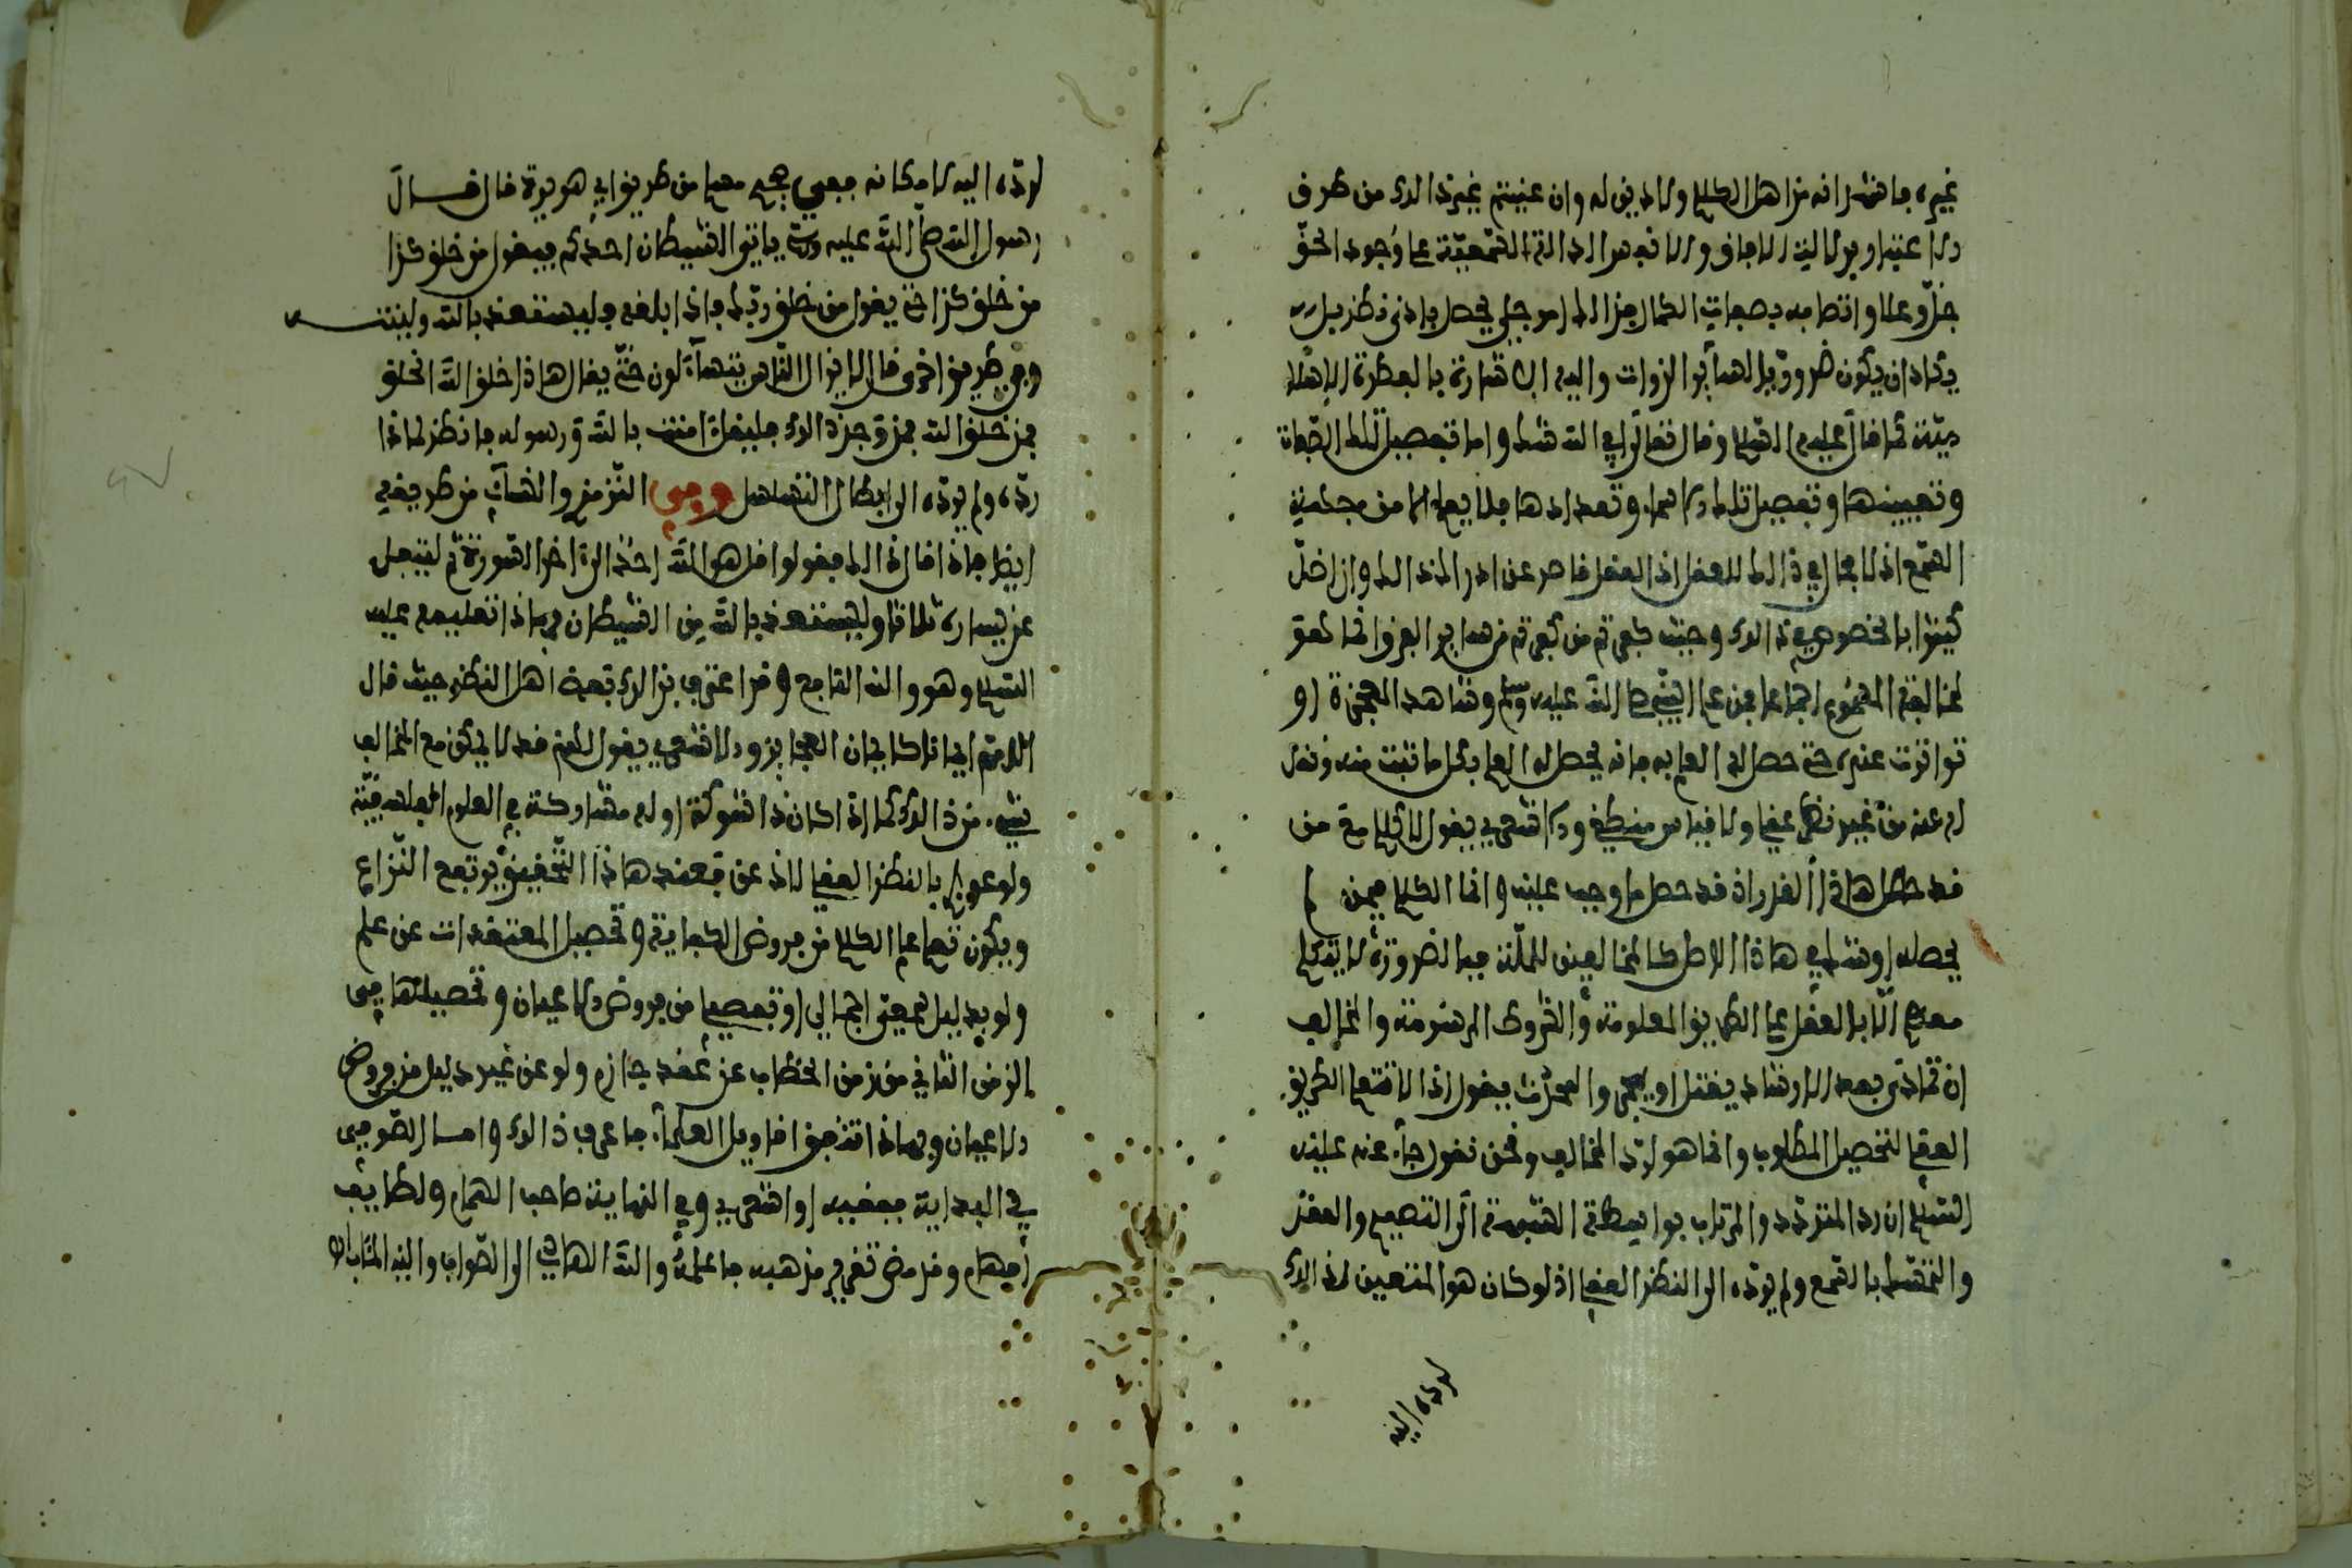 غيره فانه من اهل الكلام ولا دين له وان عنيتم غير ذالك من طرف
الاعتبار بدلالة الافاق والانفس والدلالة السمعية على وجود الحق
جل وعلا واتصافه بصفات الكمال فذالك امر جلي يحصل بادنى نظر بل
يكاد ان يكون ضروريا لسائر الذوات واليه الاشارة بالفطرة الاسلا
مية كما قال عليه السلام وقال تعالى افي الله شك واما تفصيل تلك الصفات
وتعيينها وتفصيل تلك الاسماء وتعدادها فلا يعلم الا من جهة
السمع اذ لا مجال في ذالك للعقل اذ العقل قاصر عن ادراك ذالك وان اضل
كثيرا بالخصوص في ذالك وحيث كفى ثم من كفى ثم من سائر الفرق انما كفى
لمخالفة المسموع اجماعا فمن علم النبي صلى الله عليه وسلم وشاهد المعجزة او
تواترت عنده حتى حصل له العلم به فانه يحصل له العلم بكل ما ثبت منه ونقل
له عنه من غير نظر عقلي ولا قياس منطقي والاشعري يقول لا كلام مع من
قد حصل هاذا القدر اذ قد حصل ما وجب عليه وانما الكلام فيمن لم
يحصله او شك في هاذا الاصل كالمخالفين للملة فبالضرورة لا يتكلم
معه الا بالعقل على الطريق المعلومة والشروط المرسومة والمخالف
ان تمادى بعد الارشاد يقتل او والمحدث يقول اذا لا نسلم الطريق
العقلي لتحصيل المطلوب وانما هو لرد المخالف ونحن نقول جاء عنه عليه
السلام ان رد المتردد والمرتاب بواسطة الشبهة الى التصميم والعقد
والتمسك بالسمع ولم يرده الى النظر العقلي اذ لو كان هو المتعين لذالك
لرده اليه
لرده اليه لا مكانه ففي صحيح مسلم من طريق ابي هريرة قال قال
رسول الله صلى الله عليه وسلم ياتي الشيطان احدكم فيقول من خلق كذا
من خلق كذا حتى يقول من خلق ربك فاذا بلغه فليستعذ بالله ولينته
وفي طريق اخرى قال لا يزال الناس يتساءلون حتى يقال هاذا خلق الله الخلق
فمن خلق الله فمن وجد ذالك فليقل امنت بالله ورسوله فانظر لماذا
رده ولم يرده الى ابطال التسلسل وفي الترمذي والنسائي من طريقه
ايضا فاذا قال ذالك فقولوا قل هو الله احد الى اخر السورة ثم ليتفل
عن يساره ثلاثا وليستعذ بالله من الشيطان فهاذا تعليمه عليه
السلام وهو والله النافع وقد اعترف بذالك بعض اهل النظر حيث قال
اللهم ايمانا كايمان العجائز والاشعري يقول نعم قد لا يمكن مع المخالف
شيء من ذالك كما اذا كان ذا شوكة اوله مشاركة في العلوم الفلسفية
ولو عورض بالنظر العقلي لاذعن فعند هاذا التحقيق يرتفع النزاع
ويكون تعلم علم الكلام من فروض الكفاية وتحصيل المعتقدات عن علم
ولو بدليل بمعنى اجمالي او تفصيلي من فروض الاعيان وتحصيلها في
الزمن الثاني من زمن الخطاب عن عقد جازم ولو عن غير دليل من فروض
الاعيان وبهاذا تتفق اقاويل العلماء فاعرف ذالك واما الصوفي
في البداية ففقيه او اشعري وفي النهاية صاحب الهام ولطايف
افهام وقد مضى تقرير مذهبه فاعلمه والله الهادي الى الصواب واليه المئاب